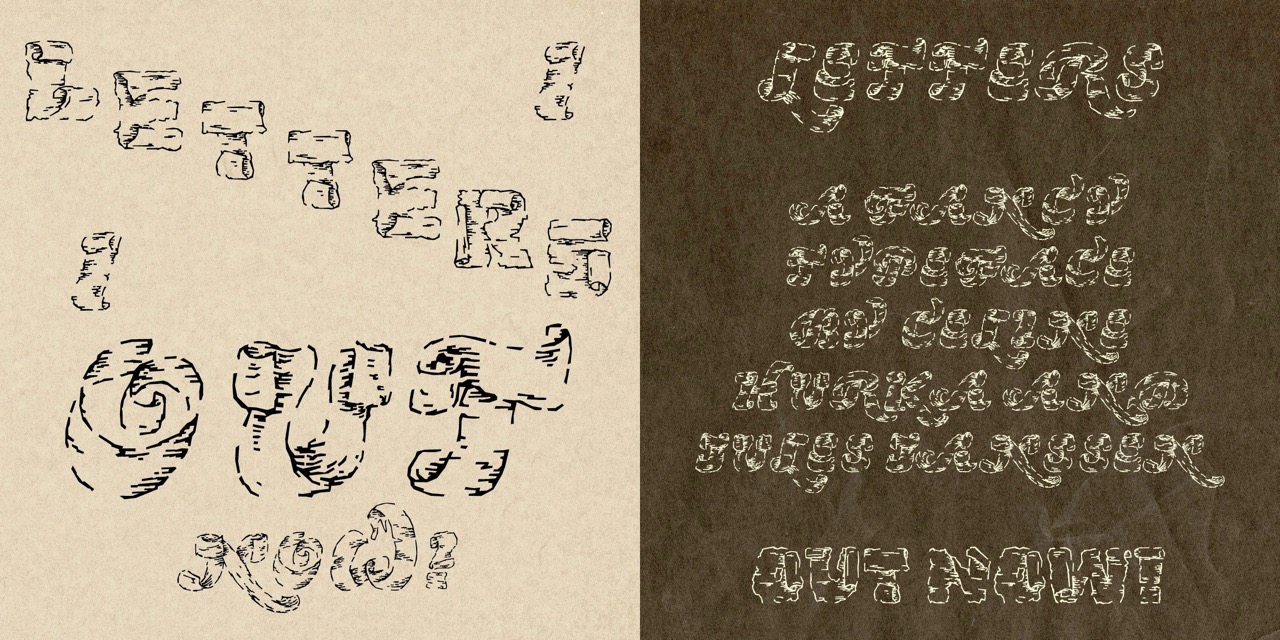 LETTERS
OUT
NOW!
LETTERS
A FANCY
TYPEFACE
BY CELINE
HURKA AND
JULES JANSSEN
OUT NOW!